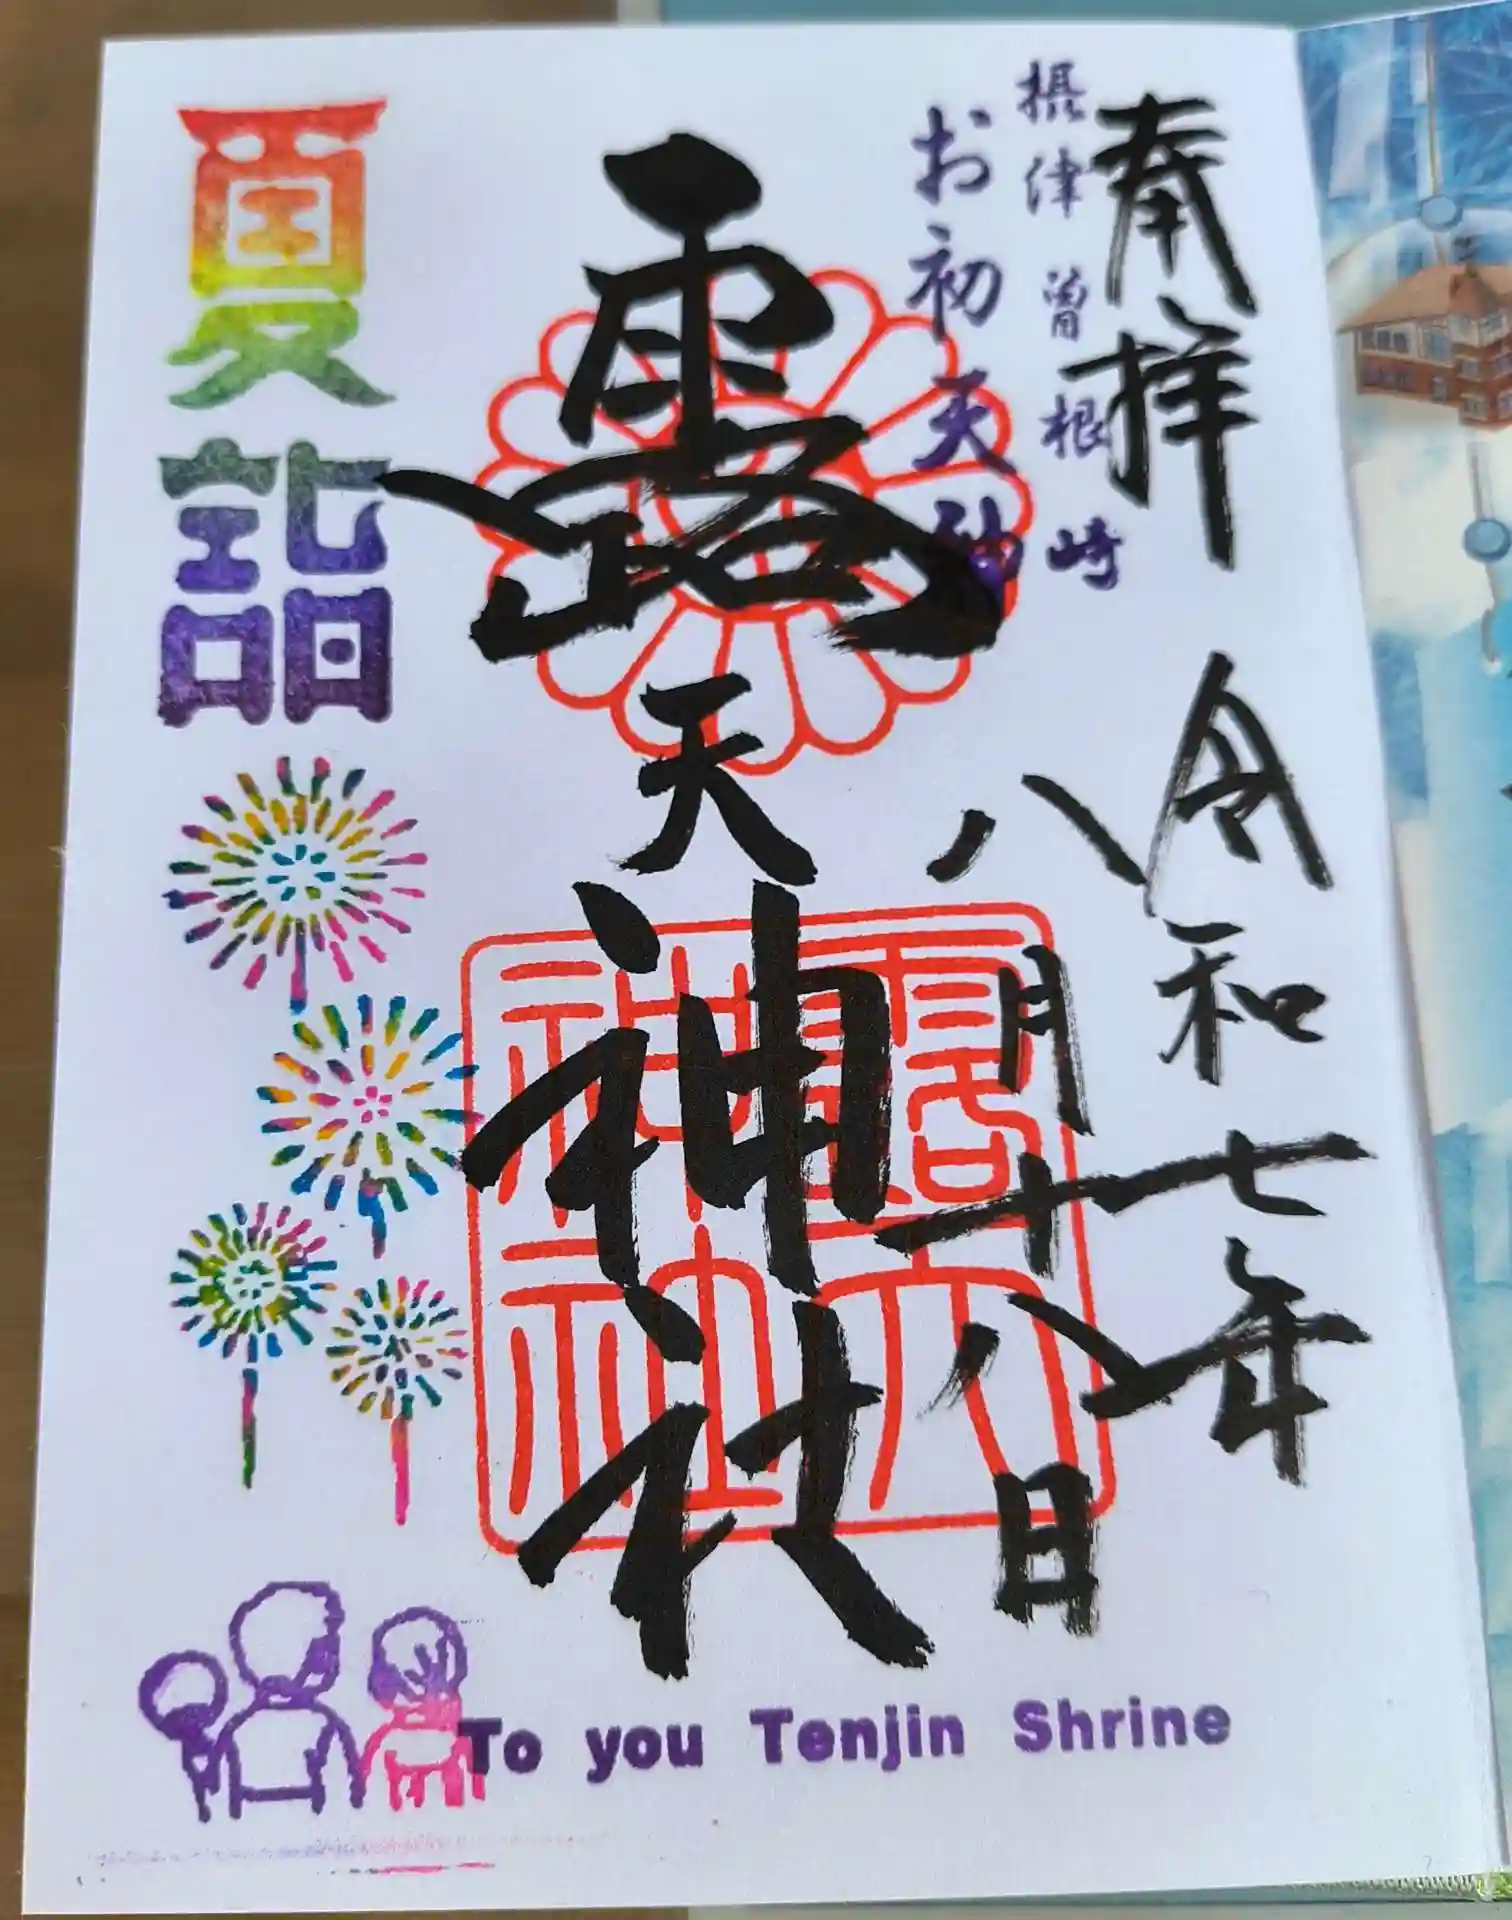 奉拝
令和七年
八月十八日
摂津曽根崎
お初天神
露天神社
露天神社
夏詣
To you Tenjin Shrine